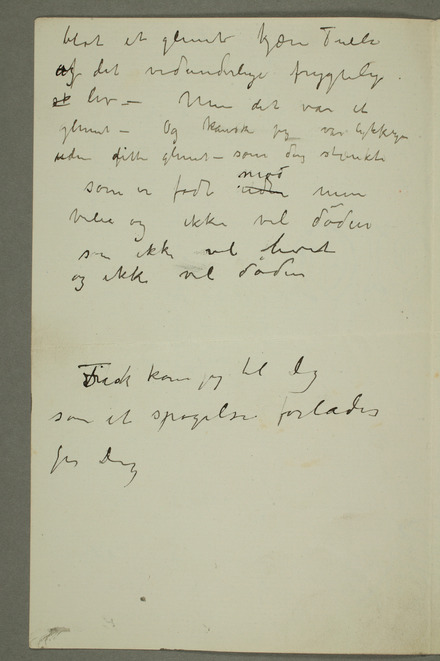 blot et glimt kjære Tulla
af det vidunderlige frygtelige
liv – Men det var et
glimt – Og kanske jeg var lykkelig
uden dette glimt – som dog
som er født mod min
vilie og ikke vil döden
som ikke vil livet
og ikke vil döden
Tidt kom jeg til Dig
som et spøgelse forlader
jeg Dig